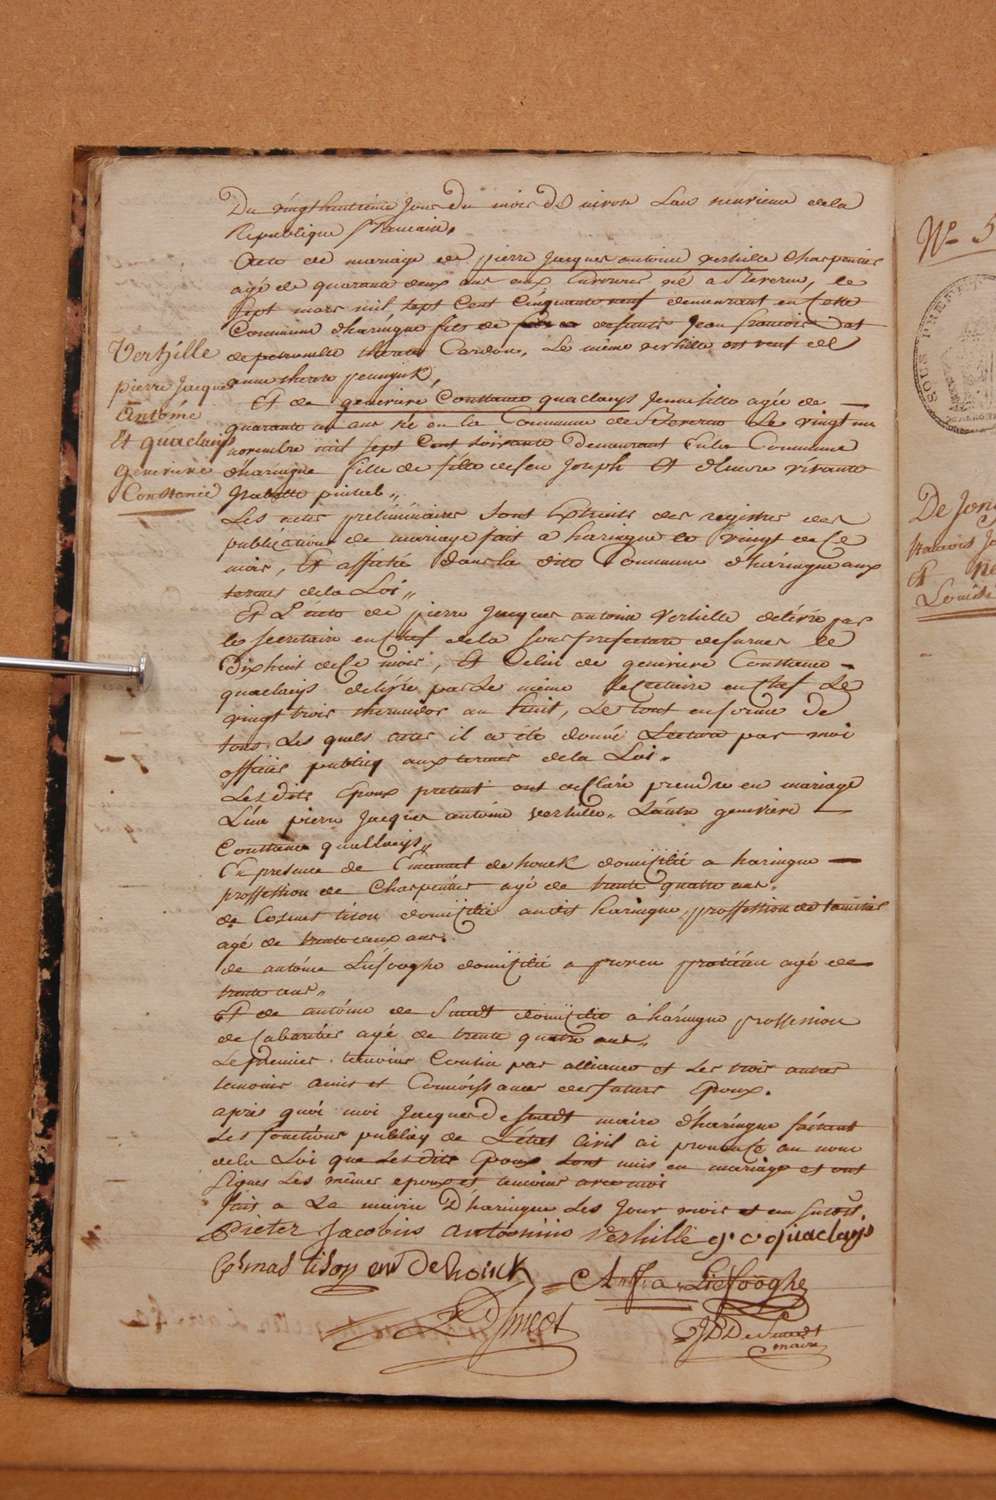 Du vingthuitieme Jour du mois de nivose L'an neuvieme de la
Republique francaise.
Acte de mariage de pierre Jacques antoine verhille Charpentier
agé de quarante deux ans aux environs né a Steverne, le
sept mars mil, sept Cent Cinquante neuf demeurant en Cette
Commune d'haringue fils de defunts Jean francois et
de petronille therese Cardon, Le même verhille est veuf de
anne therese
Et de genevieve Constance quaclaeys Jeune fille agée de
quarante un ans né en la Commune de Steverne Le vingt un
novembre mil sept Cent soixante Demeurant Commune
d'haringue fille de fille de feu Joseph Et d'Encore vivante
Isabelle
Les actes préliminaires sont Extraits des registres des
publications de mariage fait a haringue le vingt de Ce
mois, Et affiché Dans la dite Commune d'haringue aux
termes de la Loi,,
Et L'acte de pierre Jacques antoine Verhille délivré par
le Secretaire en Chef de la Sous prefecture de furnes le
Dixhuit de Ce mois, Et Celui de genevieve Constance
quaclaeys delivré par Le même Secretaire en Chef Le
vingt trois thermidor an huit, Le tout en forme De
tous Les quels actes il a été donné Lecture par moi
officier publicq aux termes de la Loi.
Lesdits Epoux present ont declaré prendre en mariage
L'un pierre Jacques antoine verhille,, L'autre genevieve
Constance quaclaeys,,
En presence de Emanuel de houck domicilié a haringue
proffession de Charpentier agé de trente quatre ans.
de Cosmas tison domicilié audit haringue, proffession de
agé de trente deux ans.
de antoine Liefooghe domicilié a agé de
trente ans,,
Et de antoine de Smedt domicilié á haringue proffession
de Cabaretier agé de trente quatre ans,,
Le premier temoins Cousin par alliance et Les trois autres
temoins amis et Connoissances des futurs Epoux.
après quoi moi Jacques De Smedt maire d'haringue faisant
Les fonctions publicq de L'état Civil ai prononcé au nom
de la Loi que Lesdits Epoux sont unis en mariage et ont
signés Les mêmes epoux et temoins avec moi
fait a La mairie D'haringue Les Jour mois et an susdit.
Pieter Jacobus Antonius Verhille g. c. quaclaeys
Cosmas tison em De houck Ant. Liefooghe
D Smedt
J D De Smedt
maire
Verhille
pierre Jacque
Antoine
Et quaclaeys
Genevieve
Constance
No 5
SOUS PREFE
De Jong
francois J
Et
Louise